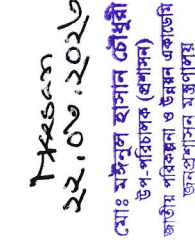 ২২.০৬.২০২৬
মোঃ মঈনুল হাসান চৌধুরী
উপ-পরিচালক (প্রশাসন)
জাতীয় পরিকল্পনা ও উন্নয়ন একাডেমি
জনপ্রশাসন মন্ত্রণালয়